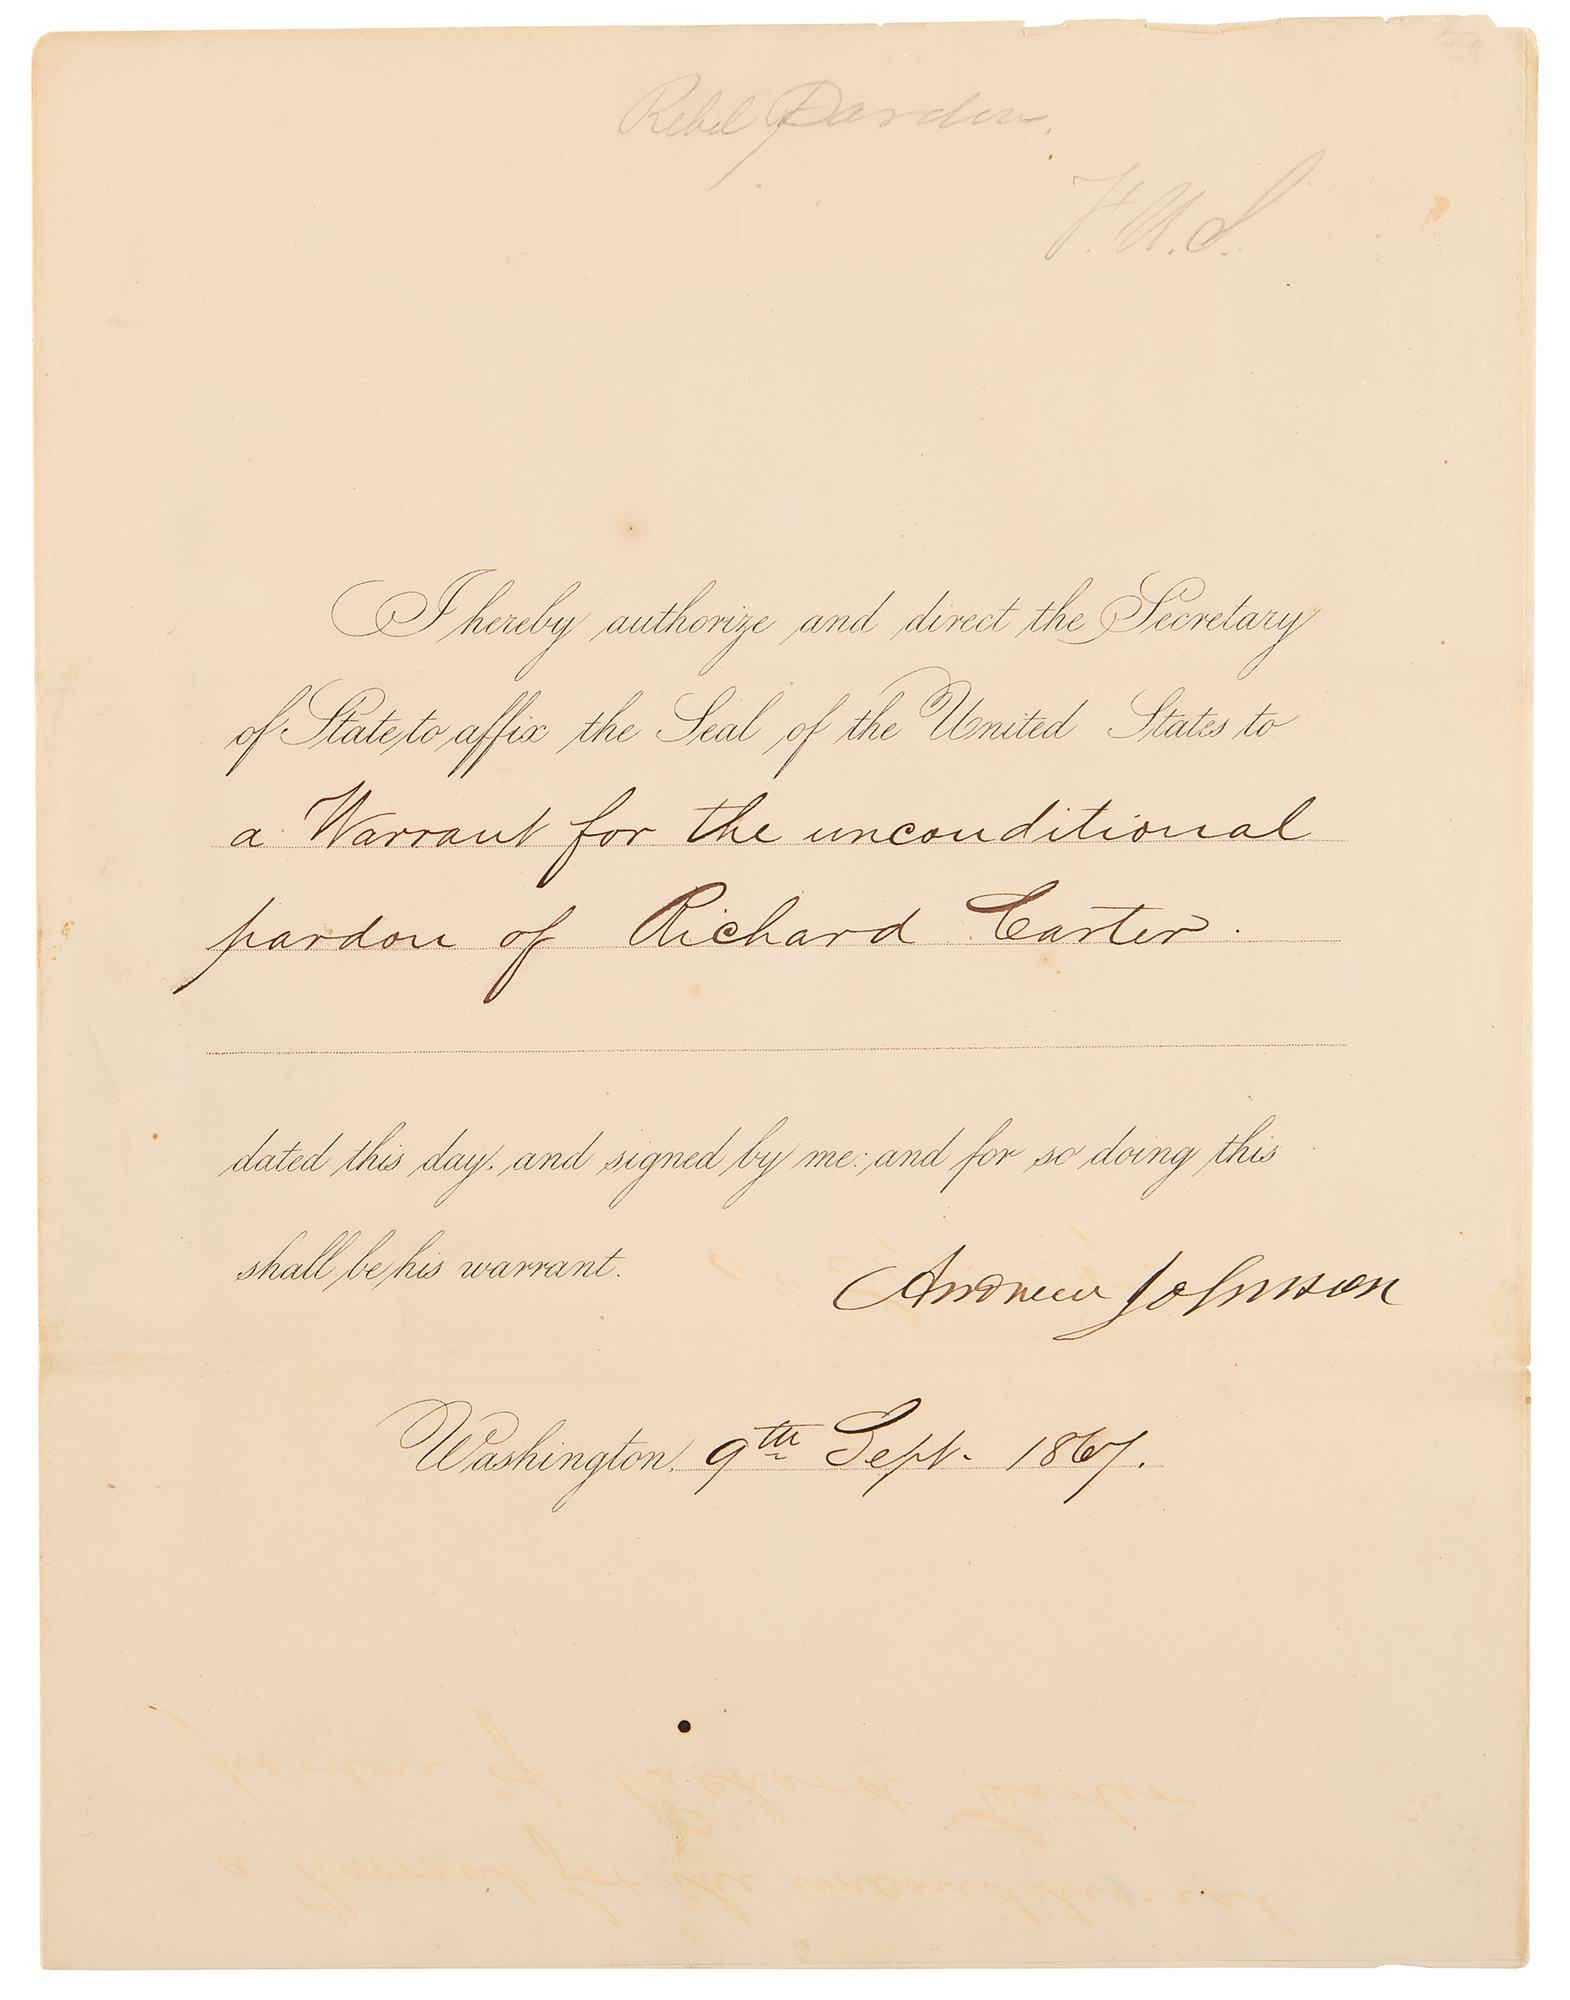 Rebel Pardon.
F.U.S.
I hereby authorize and direct the Secretary
of State to affix the Seal of the United States to
a Warrant for the unconditional
pardon of Richard Carter.
dated this day, and signed by me: and for so doing this
shall be his warrant.
Andrew Johnson
Washington, 9th Sept. 1867.